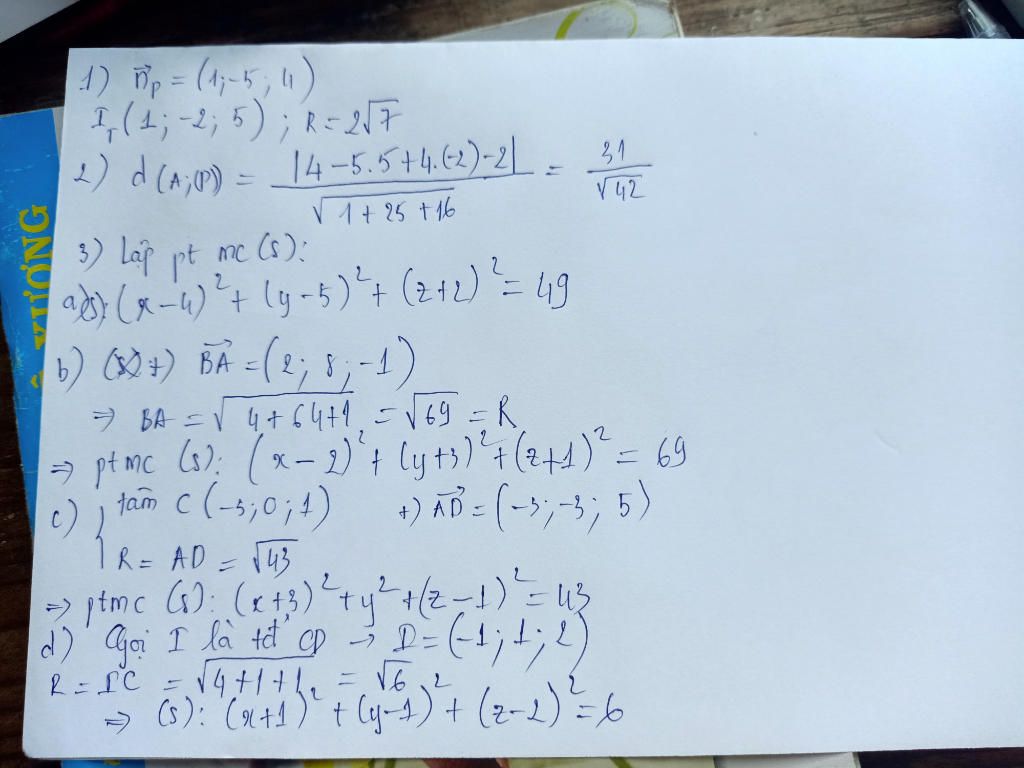 1) n⃗p = (1;-5; 4)
I_T (1; -2; 5) ; R = 2√7
2) d(A;(P)) = |4-5.5+4.(-2)-2| / √(1+25+16) = 31/√42
3) Lập pt mc (S):
a)(S): (x-4)² + (y-5)² + (z+2)² = 49
b) +) BA⃗ = (2; 8; -1)
⇒ BA = √(4+64+1) = √69 = R
⇒ ptmc (S): (x-2)² + (y+3)² + (z+1)² = 69
c) { tâm C (-3; 0; 1) +) AD⃗ = (-3; -3; 5)
R = AD = √43
⇒ ptmc (S): (x+3)² + y² + (z-1)² = 43
d) Gọi I là tđ CD → I = (-1; 1; 2)
R = IC = √(4+1+1) = √6
⇒ (S): (x+1)² + (y-1)² + (z-2)² = 6
XƯƠNG